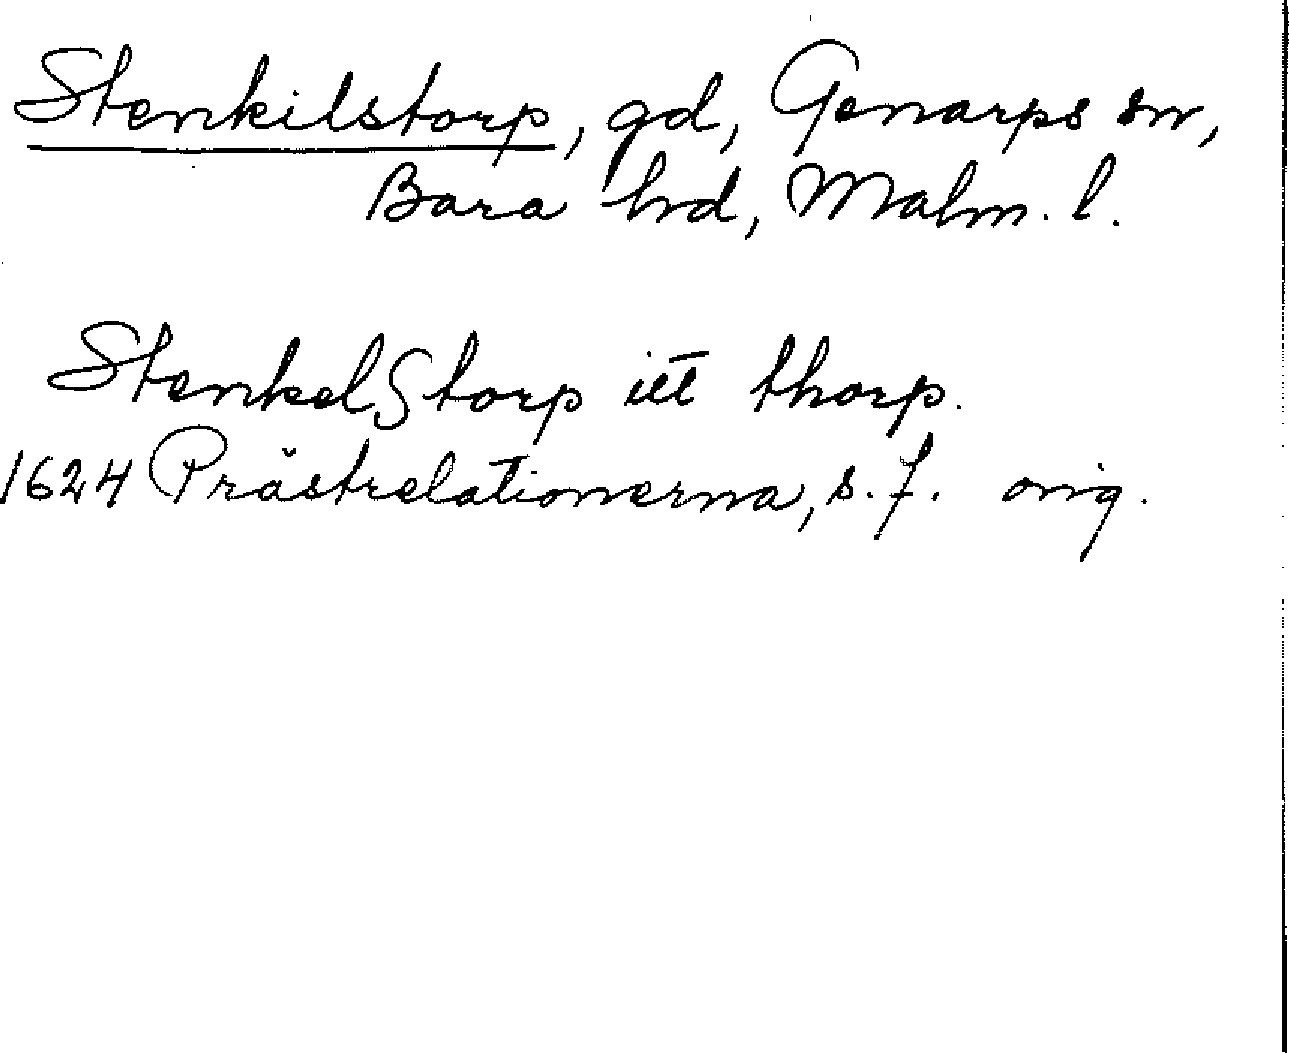 Stenkilstorp, gd, Genarps sn,
Bara hd, Malm. l.
StenkelStorp itt thorp.
1624 Prästrelationerna, s. 7. orig.